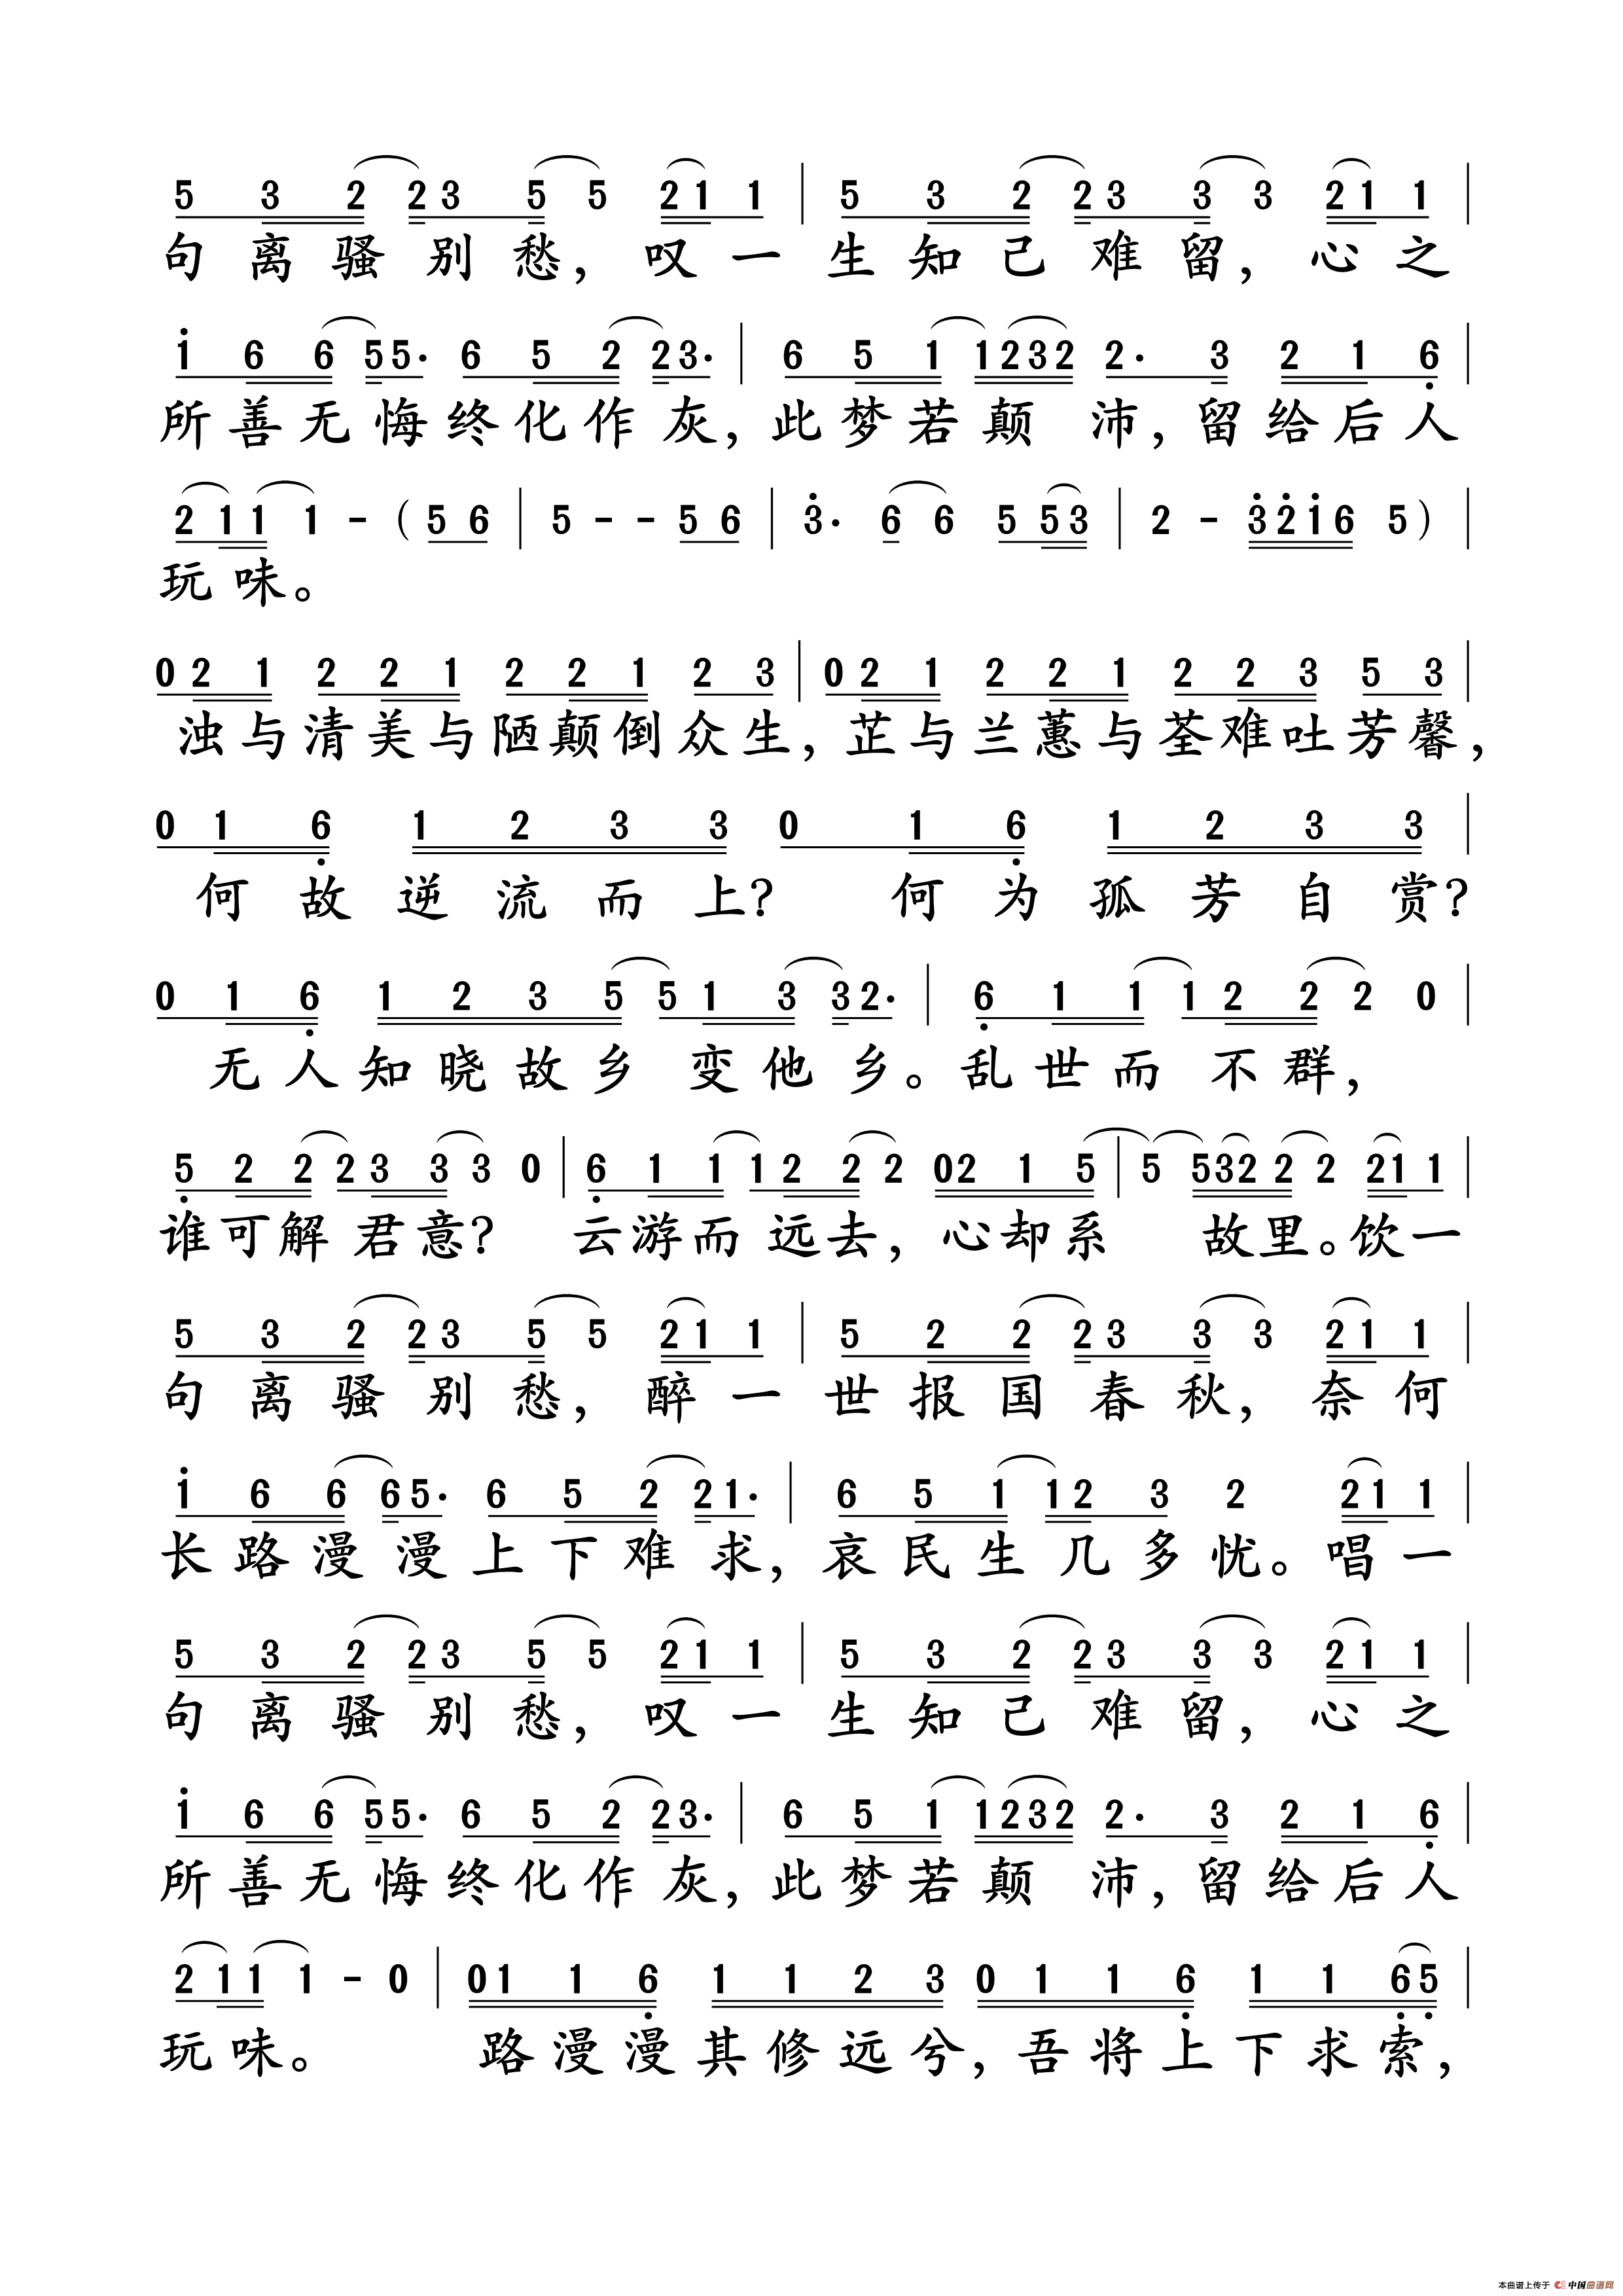 5 3 2 2 3 5 5 2 1 1 | 5 3 2 2 3 3 3 2 1 1 |
句离骚别愁，叹一生知己难留，心之
i 6 6 5 5· 6 5 2 2 3· | 6 5 1 1 2 3 2 2· 3 2 1 6̣ |
所善无悔终化作灰，此梦若颠沛，留给后人
2 1 1 1 - (5 6 | 5 - - 5 6 | 3̇· 6 6 5 5 3 | 2 - 3̇ 2̇ i 6 5) |
玩味。
0 2 1 2 2 1 2 2 1 2 3 | 0 2 1 2 2 1 2 2 3 5 3 |
浊与清美与陋颠倒众生，芷与兰蕙与荃难吐芳馨，
0 1 6̣ 1 2 3 3 0 1 6̣ 1 2 3 3 |
何故逆流而上？何为孤芳自赏？
0 1 6̣ 1 2 3 5 5 1 3 3 2· | 6̣ 1 1 1 2 2 2 0 |
无人知晓故乡变他乡。乱世而不群，
5̣ 2 2 2 3 3 3 0 | 6̣ 1 1 1 2 2 2 0 2 1 5 | 5 5 3 2 2 2 2 1 1 |
谁可解君意？云游而远去，心却系故里。饮一
5 3 2 2 3 5 5 2 1 1 | 5 2 2 2 3 3 3 2 1 1 |
句离骚别愁，醉一世报国春秋，奈何
i 6 6 6 5· 6 5 2 2 1· | 6 5 1 1 2 3 2 2 1 1 |
长路漫漫上下难求，哀民生几多忧。唱一
5 3 2 2 3 5 5 2 1 1 | 5 3 2 2 3 3 3 2 1 1 |
句离骚别愁，叹一生知己难留，心之
i 6 6 5 5· 6 5 2 2 3· | 6 5 1 1 2 3 2 2· 3 2 1 6̣ |
所善无悔终化作灰，此梦若颠沛，留给后人
2 1 1 1 - 0 | 0 1 1 6̣ 1 1 2 3 0 1 1 6̣ 1 1 6̣ 5̣ |
玩味。路漫漫其修远兮，吾将上下求索，
本曲谱上传于 中国曲谱网